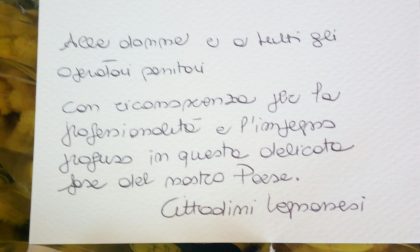 Alle donne e a tutti gli
operatori sanitari
con riconoscenza per la
professionalità e l'impegno
profuso in questa delicata
fase del nostro Paese.
Cittadini Legnanesi